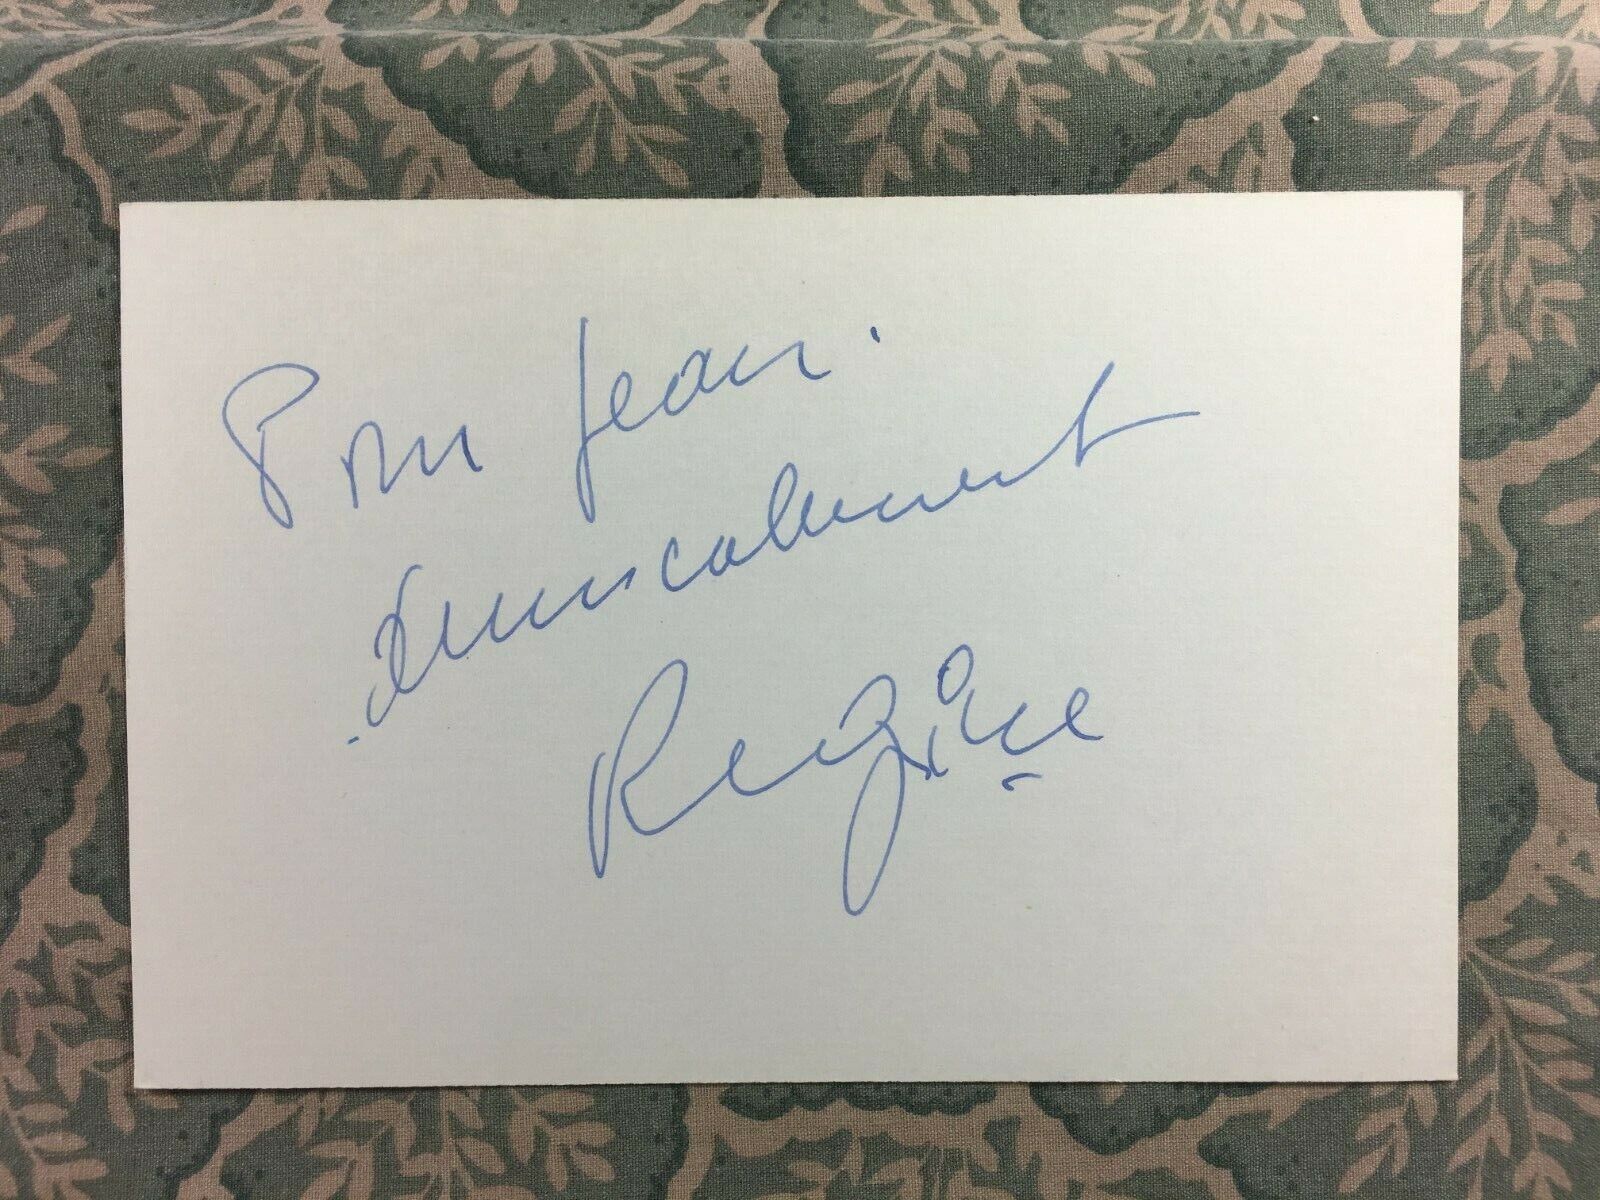 Pour Jean.
Amicalement
Régine